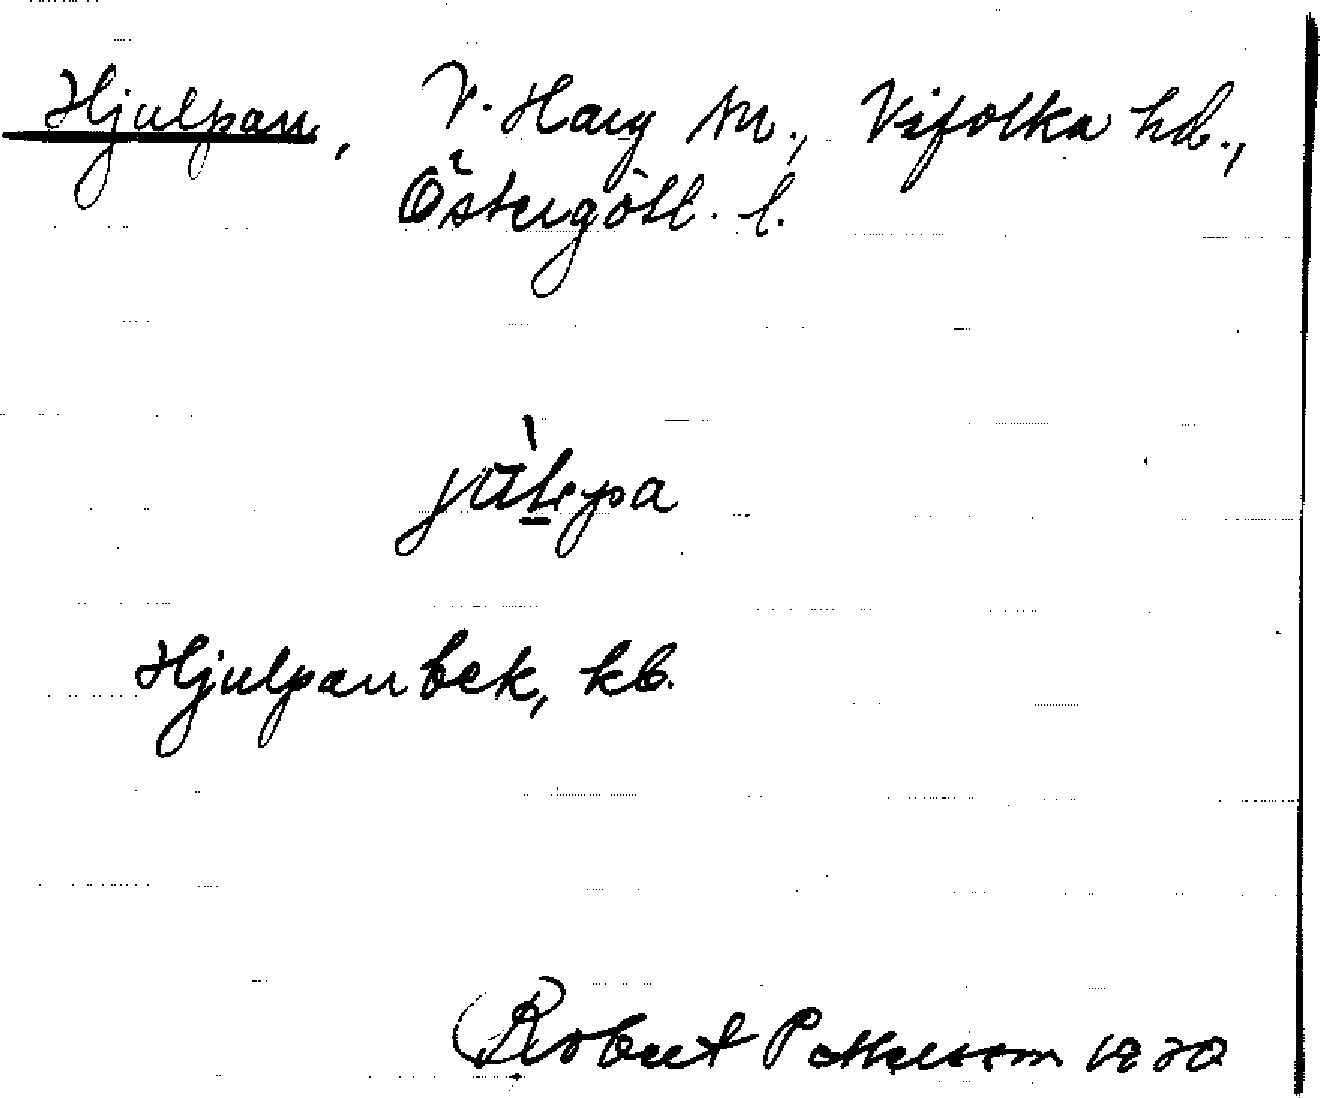 Hjulpan, V. Harg sn., Vifolka hd.,
Östergötl. l.
Hjulpan bek, kb.
Robert Pettersson 1920